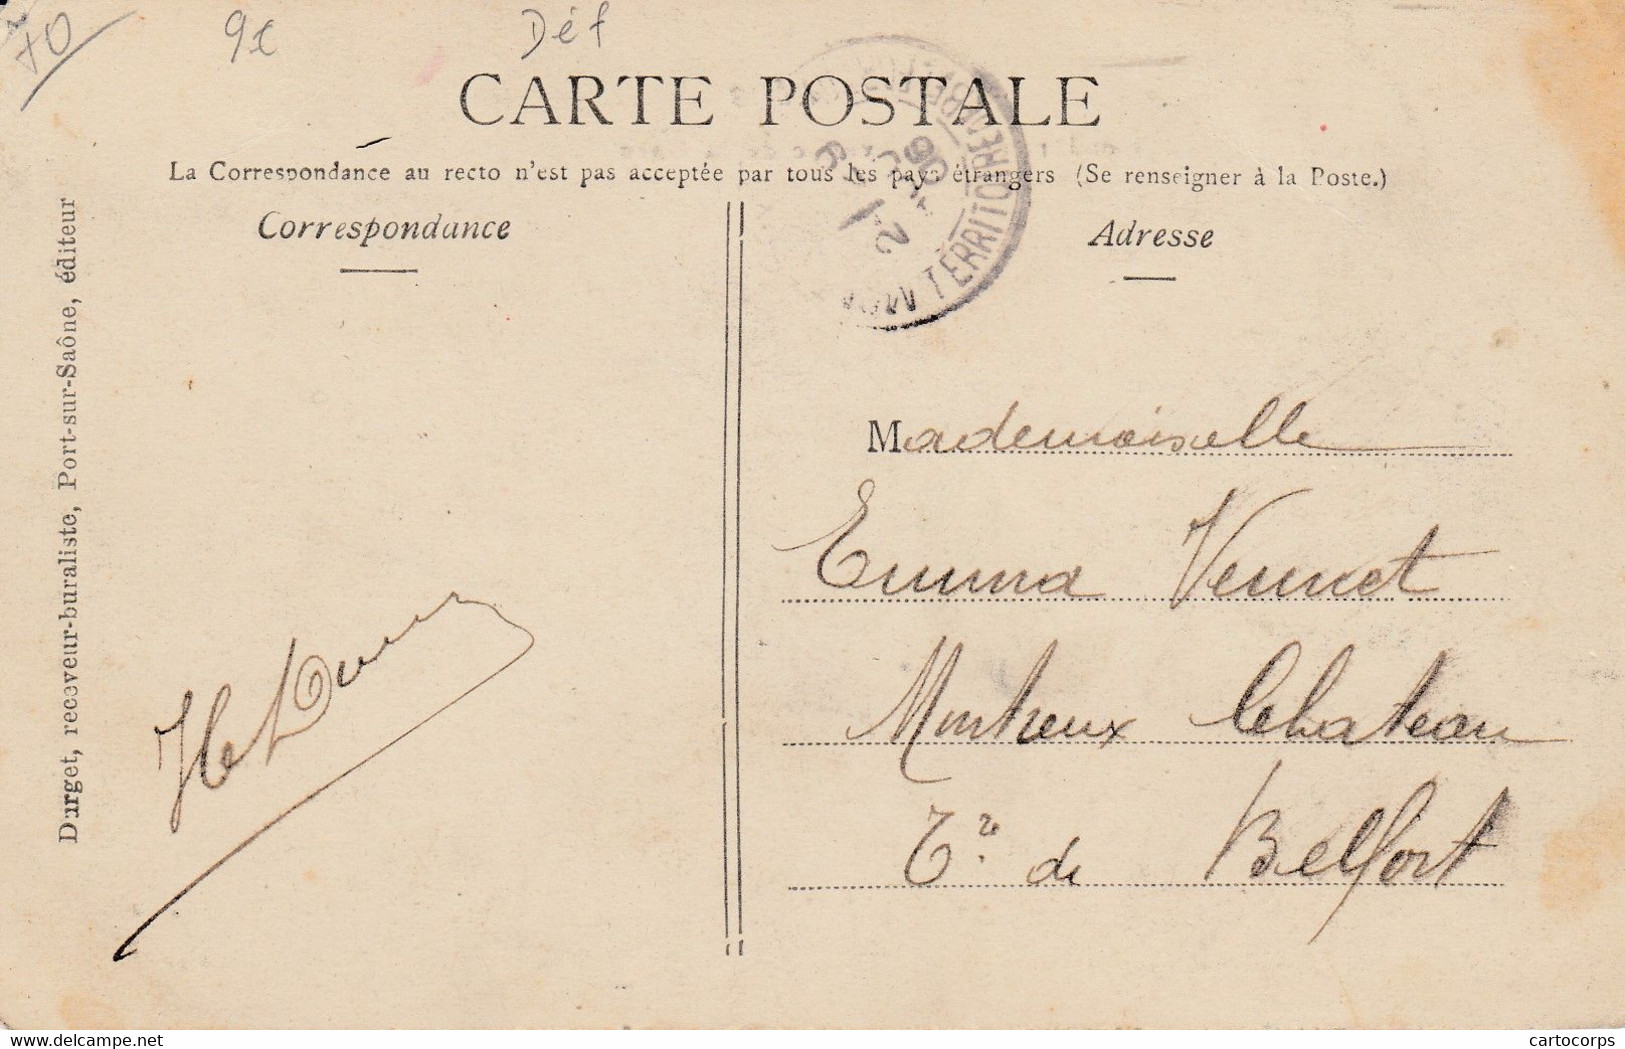 70
9€
Déf
CARTE POSTALE
La Correspondance au recto n'est pas acceptée par tous les pays étrangers (Se renseigner à la Poste.)
Correspondance
Adresse
Durget, receveur-buraliste, Port-sur-Saône, éditeur
TERRITOIRE DE BELFORT
06
Mademoiselle
Emma Vernet
Montreux Château
T.re de Belfort
delcampe.net
cartocorps